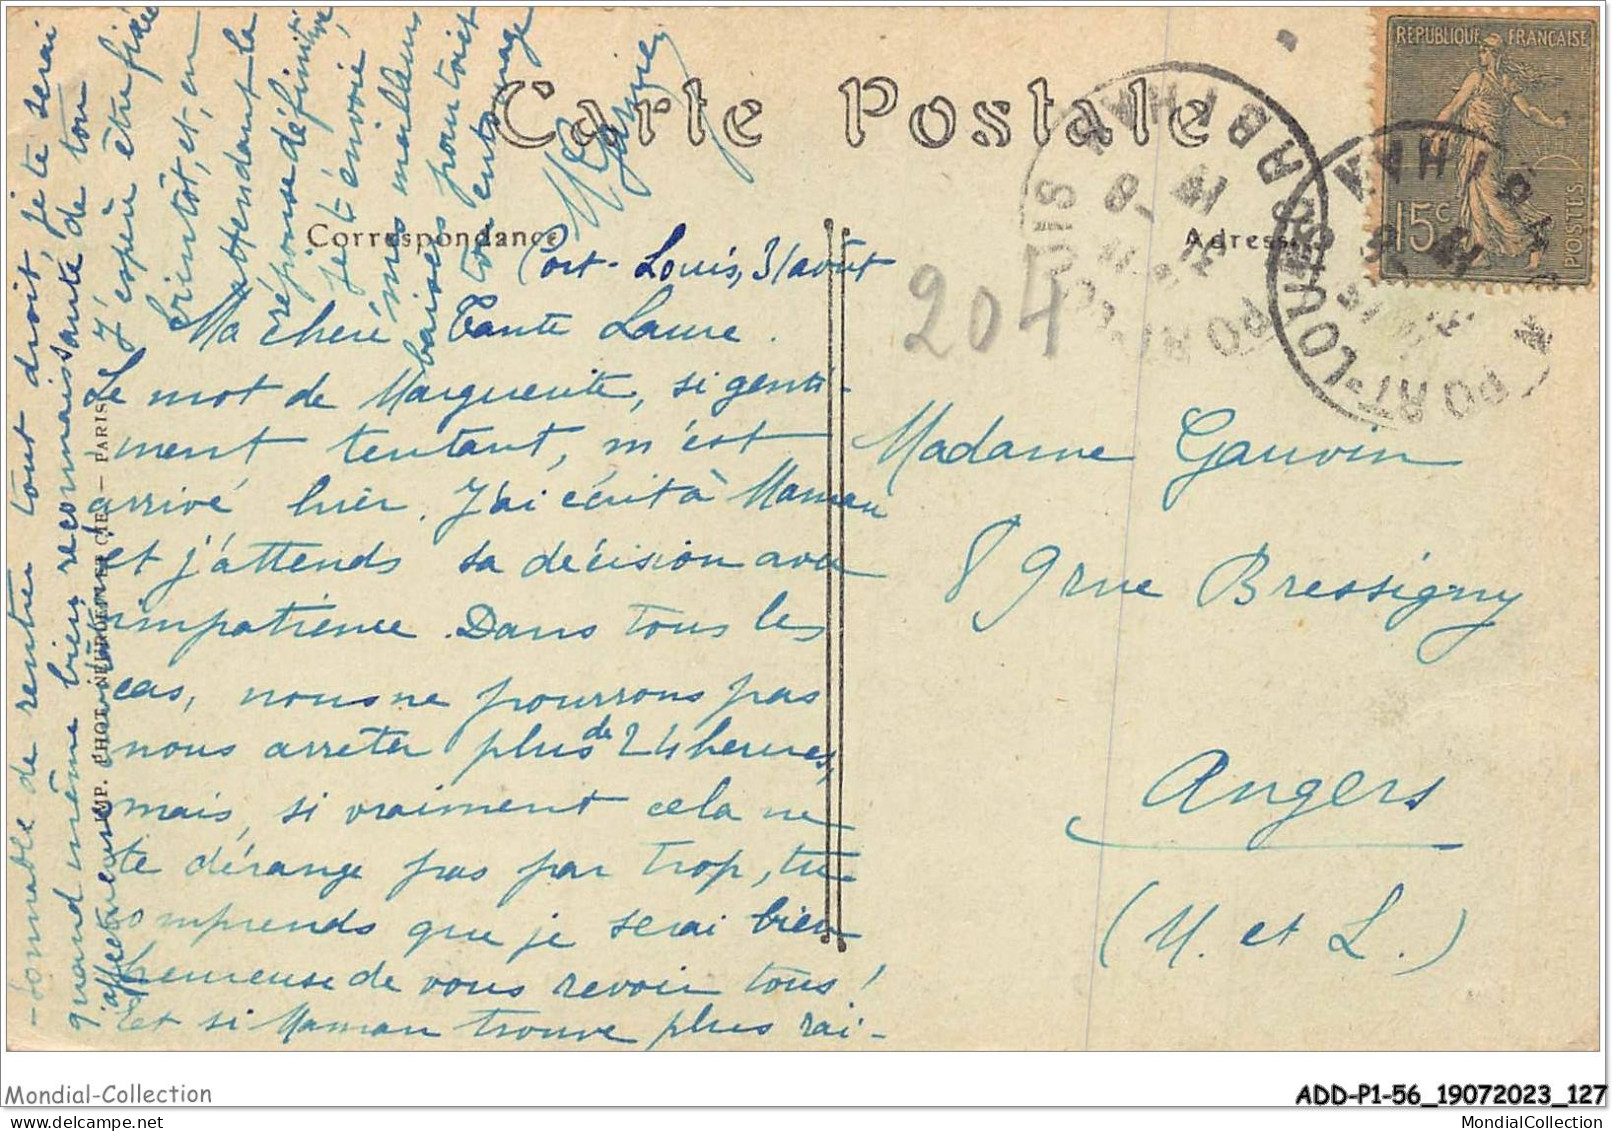 Carte Postale
Correspondance
Adresse
RÉPUBLIQUE FRANÇAISE
15c
POSTES
PORT-LOUIS
MORBIHAN
PORT-LOUIS
204
Port-Louis, 31 août
Ma chère Tante Laure.
Le mot de Marguerite, si genti-
ment tentant, m'est
arrivé hier. J'ai écrit à Maman
et j'attends sa décision avec
impatience. Dans tous les
cas, nous ne pourrons pas
nous arrêter plus de 24 heures,
mais, si vraiment cela ne
te dérange pas par trop, tu
comprends que je serai bien
heureuse de vous revoir tous!
Et si Maman trouve plus rai-
-sonnable de rentrer tout droit, je te serai
quand même bien reconnaissante de ton
affectueuse
J'espère être fixée
bientôt, et, en
attendant la
réponse définitive,
je t'envoie,
mes meilleurs
baisers pour toi et
ton entourage
Madame Gauvin
89 rue Bressigny
Angers
(M. et L.)
IMP. PHOT. NEURDEIN ET CIE. - PARIS
Mondial-Collection
ADD-P1-56_19072023_127
MondialCollection.com